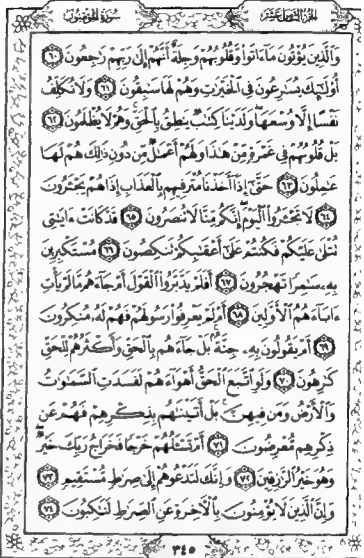 الجزء الثامن عشر
سورة المؤمنون
وَالَّذِينَ يُؤْتُونَ مَا آتَوا وَّقُلُوبُهُمْ وَجِلَةٌ أَنَّهُمْ إِلَىٰ رَبِّهِمْ رَاجِعُونَ ٦٠
أُولَٰئِكَ يُسَارِعُونَ فِي الْخَيْرَاتِ وَهُمْ لَهَا سَابِقُونَ ٦١ وَلَا نُكَلِّفُ
نَفْسًا إِلَّا وُسْعَهَا وَلَدَيْنَا كِتَابٌ يَنطِقُ بِالْحَقِّ وَهُمْ لَا يُظْلَمُونَ ٦٢
بَلْ قُلُوبُهُمْ فِي غَمْرَةٍ مِّنْ هَٰذَا وَلَهُمْ أَعْمَالٌ مِّن دُونِ ذَٰلِكَ هُمْ لَهَا
عَامِلُونَ ٦٣ حَتَّىٰ إِذَا أَخَذْنَا مُتْرَفِيهِم بِالْعَذَابِ إِذَا هُمْ يَجْأَرُونَ
٦٤ لَا تَجْأَرُوا الْيَوْمَ إِنَّكُم مِّنَّا لَا تُنصَرُونَ ٦٥ قَدْ كَانَتْ آيَاتِي
تُتْلَىٰ عَلَيْكُمْ فَكُنتُمْ عَلَىٰ أَعْقَابِكُمْ تَنكِصُونَ ٦٦ مُسْتَكْبِرِينَ
بِهِ سَامِرًا تَهْجُرُونَ ٦٧ أَفَلَمْ يَدَّبَّرُوا الْقَوْلَ أَمْ جَاءَهُم مَّا لَمْ يَأْتِ
آبَاءَهُمُ الْأَوَّلِينَ ٦٨ أَمْ لَمْ يَعْرِفُوا رَسُولَهُمْ فَهُمْ لَهُ مُنكِرُونَ
٦٩ أَمْ يَقُولُونَ بِهِ جِنَّةٌ بَلْ جَاءَهُم بِالْحَقِّ وَأَكْثَرُهُمْ لِلْحَقِّ
كَارِهُونَ ٧٠ وَلَوِ اتَّبَعَ الْحَقُّ أَهْوَاءَهُمْ لَفَسَدَتِ السَّمَاوَاتُ
وَالْأَرْضُ وَمَن فِيهِنَّ بَلْ أَتَيْنَاهُم بِذِكْرِهِمْ فَهُمْ عَن
ذِكْرِهِم مُّعْرِضُونَ ٧١ أَمْ تَسْأَلُهُمْ خَرْجًا فَخَرَاجُ رَبِّكَ خَيْرٌ
وَهُوَ خَيْرُ الرَّازِقِينَ ٧٢ وَإِنَّكَ لَتَدْعُوهُمْ إِلَىٰ صِرَاطٍ مُّسْتَقِيمٍ ٧٣
وَإِنَّ الَّذِينَ لَا يُؤْمِنُونَ بِالْآخِرَةِ عَنِ الصِّرَاطِ لَنَاكِبُونَ ٧٤
٣٤٥